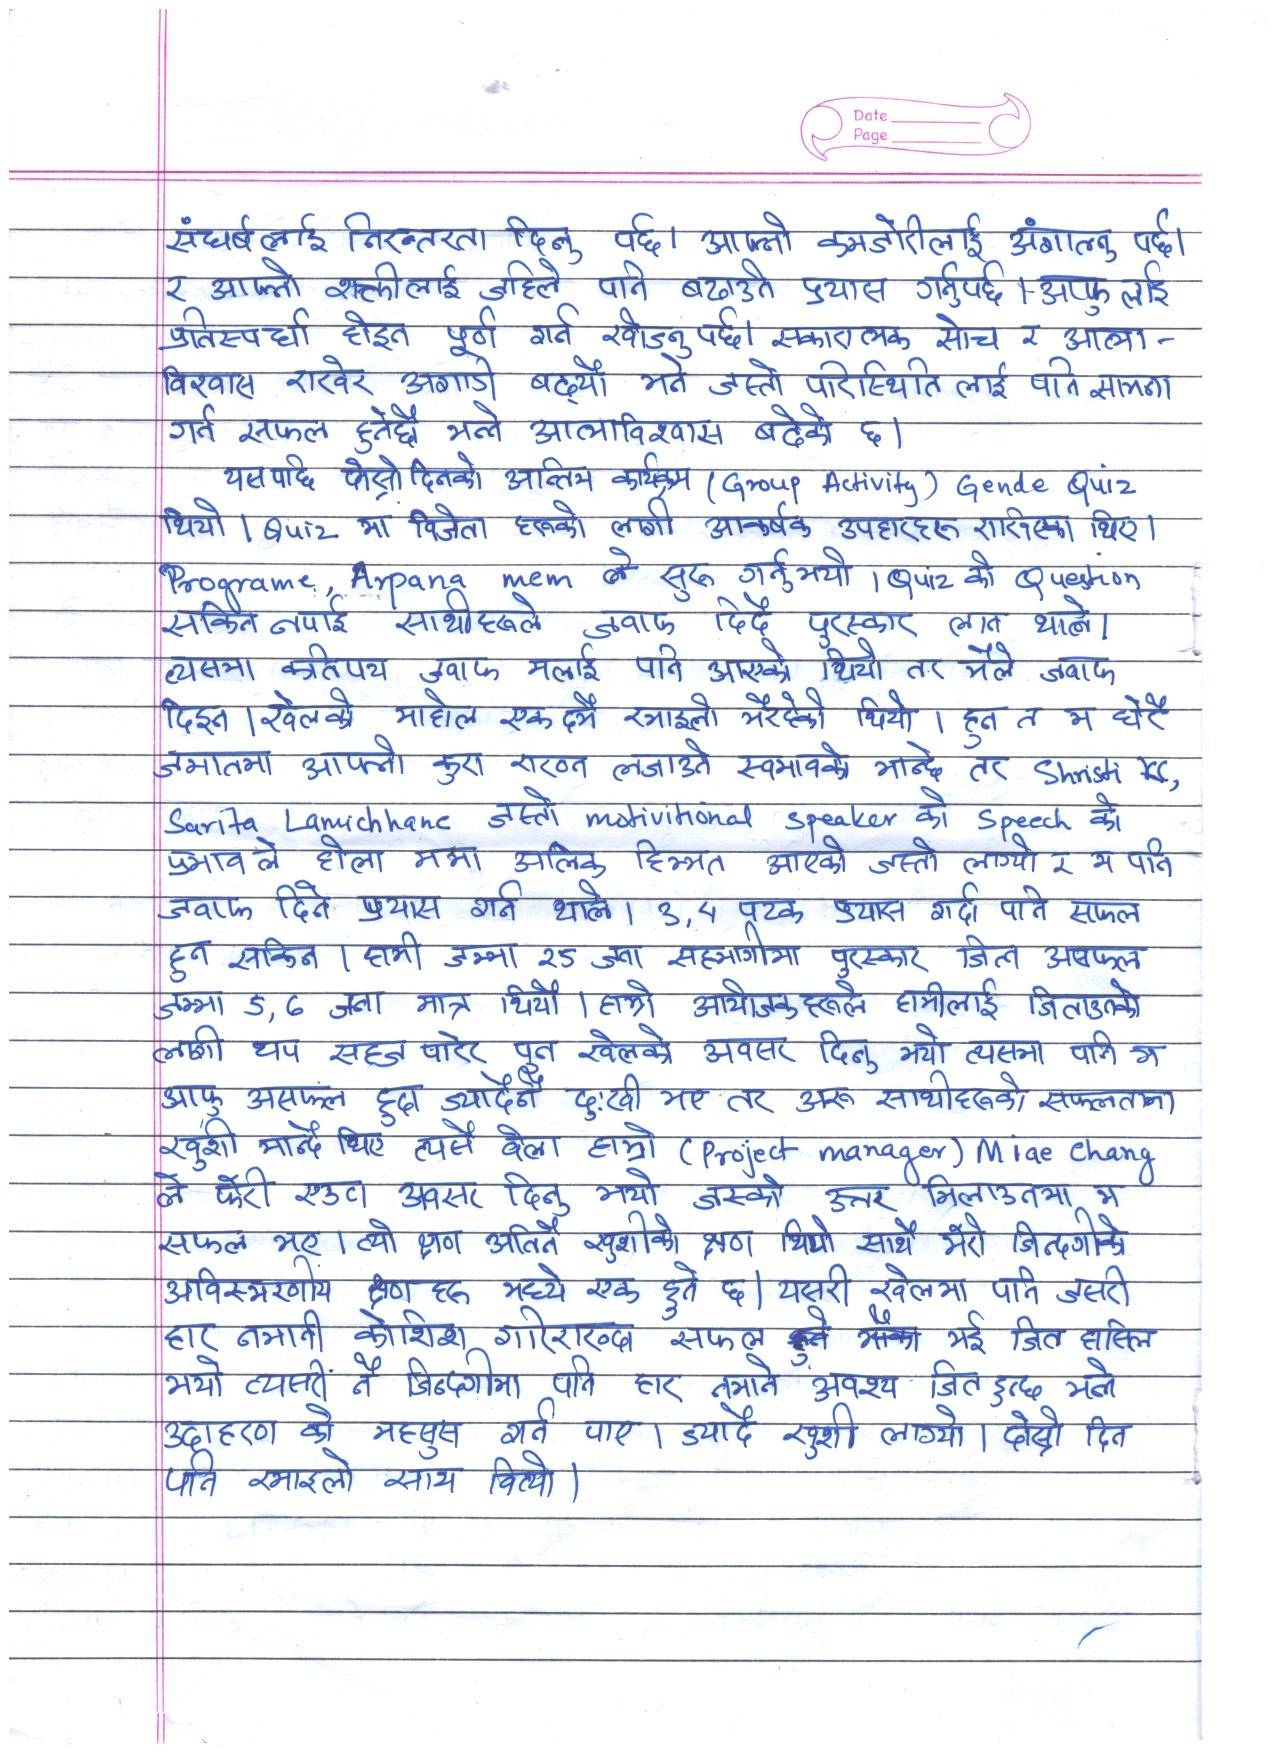 Date
Page
संघर्षलाई निरन्तरता दिनु पर्छ। आफ्नो कमजोरीलाई अंगाल्नु पर्छ।
र आफ्नो शक्तीलाई जहिले पनि बढाउने प्रयास गर्नुपर्छ । आफु लाई
प्रतिस्पर्धा होइन पूर्ण गर्न खोज्नुपर्छ। सकारात्मक सोच र आत्मा -
विश्वास राखेर अगाडी बढ्यौं भने जस्तो परिस्थिति लाई पनि सामना
गर्न सफल हुनेछौं भन्ने आत्माविश्वास बढेको छ।
यस पछि दोस्रो दिनको अन्तिम कार्यक्रम (Group Activity) Gende Quiz
थियो । Quiz मा विजेता हरूको लागी आकर्षक उपहारहरू राखिएका थिए।
Programe, Arpana mem ले सुरू गर्नु भयो । Quiz को Question
सकिन नपाई साथीहरूले जवाफ दिदै पुरस्कार लान थाले।
त्यसमा कतिपय जवाफ मलाई पनि आएको थियो तर मैले जवाफ
दिइन । खेलको माहोल एकदमै रमाइलो भैरहेको थियो । हुन त म धेरै
जमातमा आफ्नो कुरा राख्न लजाउने स्वभावको मान्छे तर Shristi KC,
Sarita Lamichhane जस्तो motivitional speaker को Speech को
प्रभाव ले होला ममा अलिक हिम्मत आएको जस्तो लाग्यो र म पनि
जवाफ दिने प्रयास गर्न थाले। ३,४ पटक प्रयास गर्दा पनि सफल
हुन सकिन । हामी जम्मा २५ जना सहभागीमा पुरस्कार जित्न असफल
जम्मा ५,६ जना मात्र थियौं । हाम्रो आयोजकहरूले हामीलाई जिताउनको
लागी थप सहज पारेर पुन खेलको अवसर दिनु भयो त्यसमा पनि म
आफु असफल हुदा ज्यादैनै दुःखी भए तर अरू साथीहरूको सफलतामा
खुशी मान्दै थिए त्यसै बेला हाम्रो (Project manager) Miae Chang
ले फेरी एउटा अवसर दिनु भयो जसको उत्तर मिलाउनमा म
सफल भए । त्यो क्षण अतिनै खुशीको क्षण थियो साथै मेरो जिन्दगीको
अविस्मरणीय क्षण हरू मध्ये एक हुने छ। यसरी खेलमा पनि जसरी
हार नमानी कोशिश गरिराख्दा सफल भई जित हासिल
भयो त्यसरी नै जिन्दगीमा पनि हार नमाने अवश्य जित हुन्छ भन्ने
उदाहरण को महसुस गर्न पाए । ज्यादै खुशी लाग्यो । दोस्रो दिन
पनि रमाइलो साथ बित्यो ।